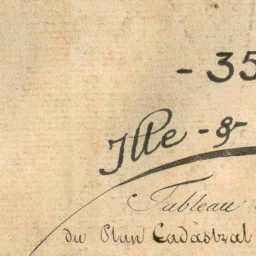 - 35
Ille - &
Tableau
du Plan Cadastral